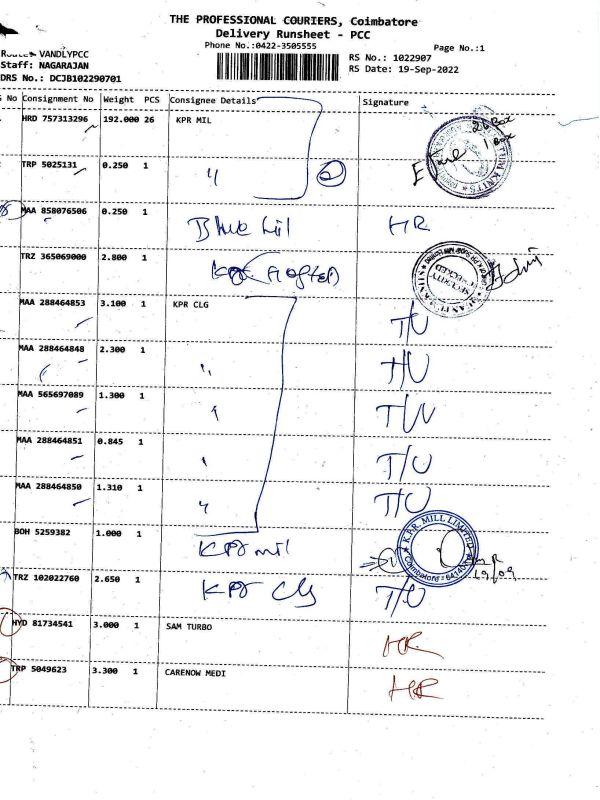 THE PROFESSIONAL COURIERS, Coimbatore
Delivery Runsheet - PCC
Phone No.:0422-3505555
Page No.:1
Route: VANDLYPCC
RS No.: 1022907
Staff: NAGARAJAN
RS Date: 19-Sep-2022
DRS No.: DCJB102290701
No Consignment No Weight PCS Consignee Details Signature
HRD 757313296 192.000 26 KPR MIL
26 Box
1 Box
TRP 5025131 0.250 1 〃
MAA 858076506 0.250 1 Blue hil HR
TRZ 365069000 2.800 1
SECURITY CHECKED
MAA 288464853 3.100 1 KPR CLG T/U
MAA 288464848 2.300 1 〃 T/U
MAA 565697089 1.300 1 〃 T/U
MAA 288464851 0.845 1 〃 T/U
MAA 288464850 1.310 1 〃 T/U
BOH 5259382 1.000 1 KPR mil
K.P.R. MILL LIMITED
Coimbatore - 64140
19/09
TRZ 102022760 2.650 1 KPR Clg T/U
HYD 81734541 3.000 1 SAM TURBO HR
TRP 5049623 3.300 1 CARENOW MEDI HR